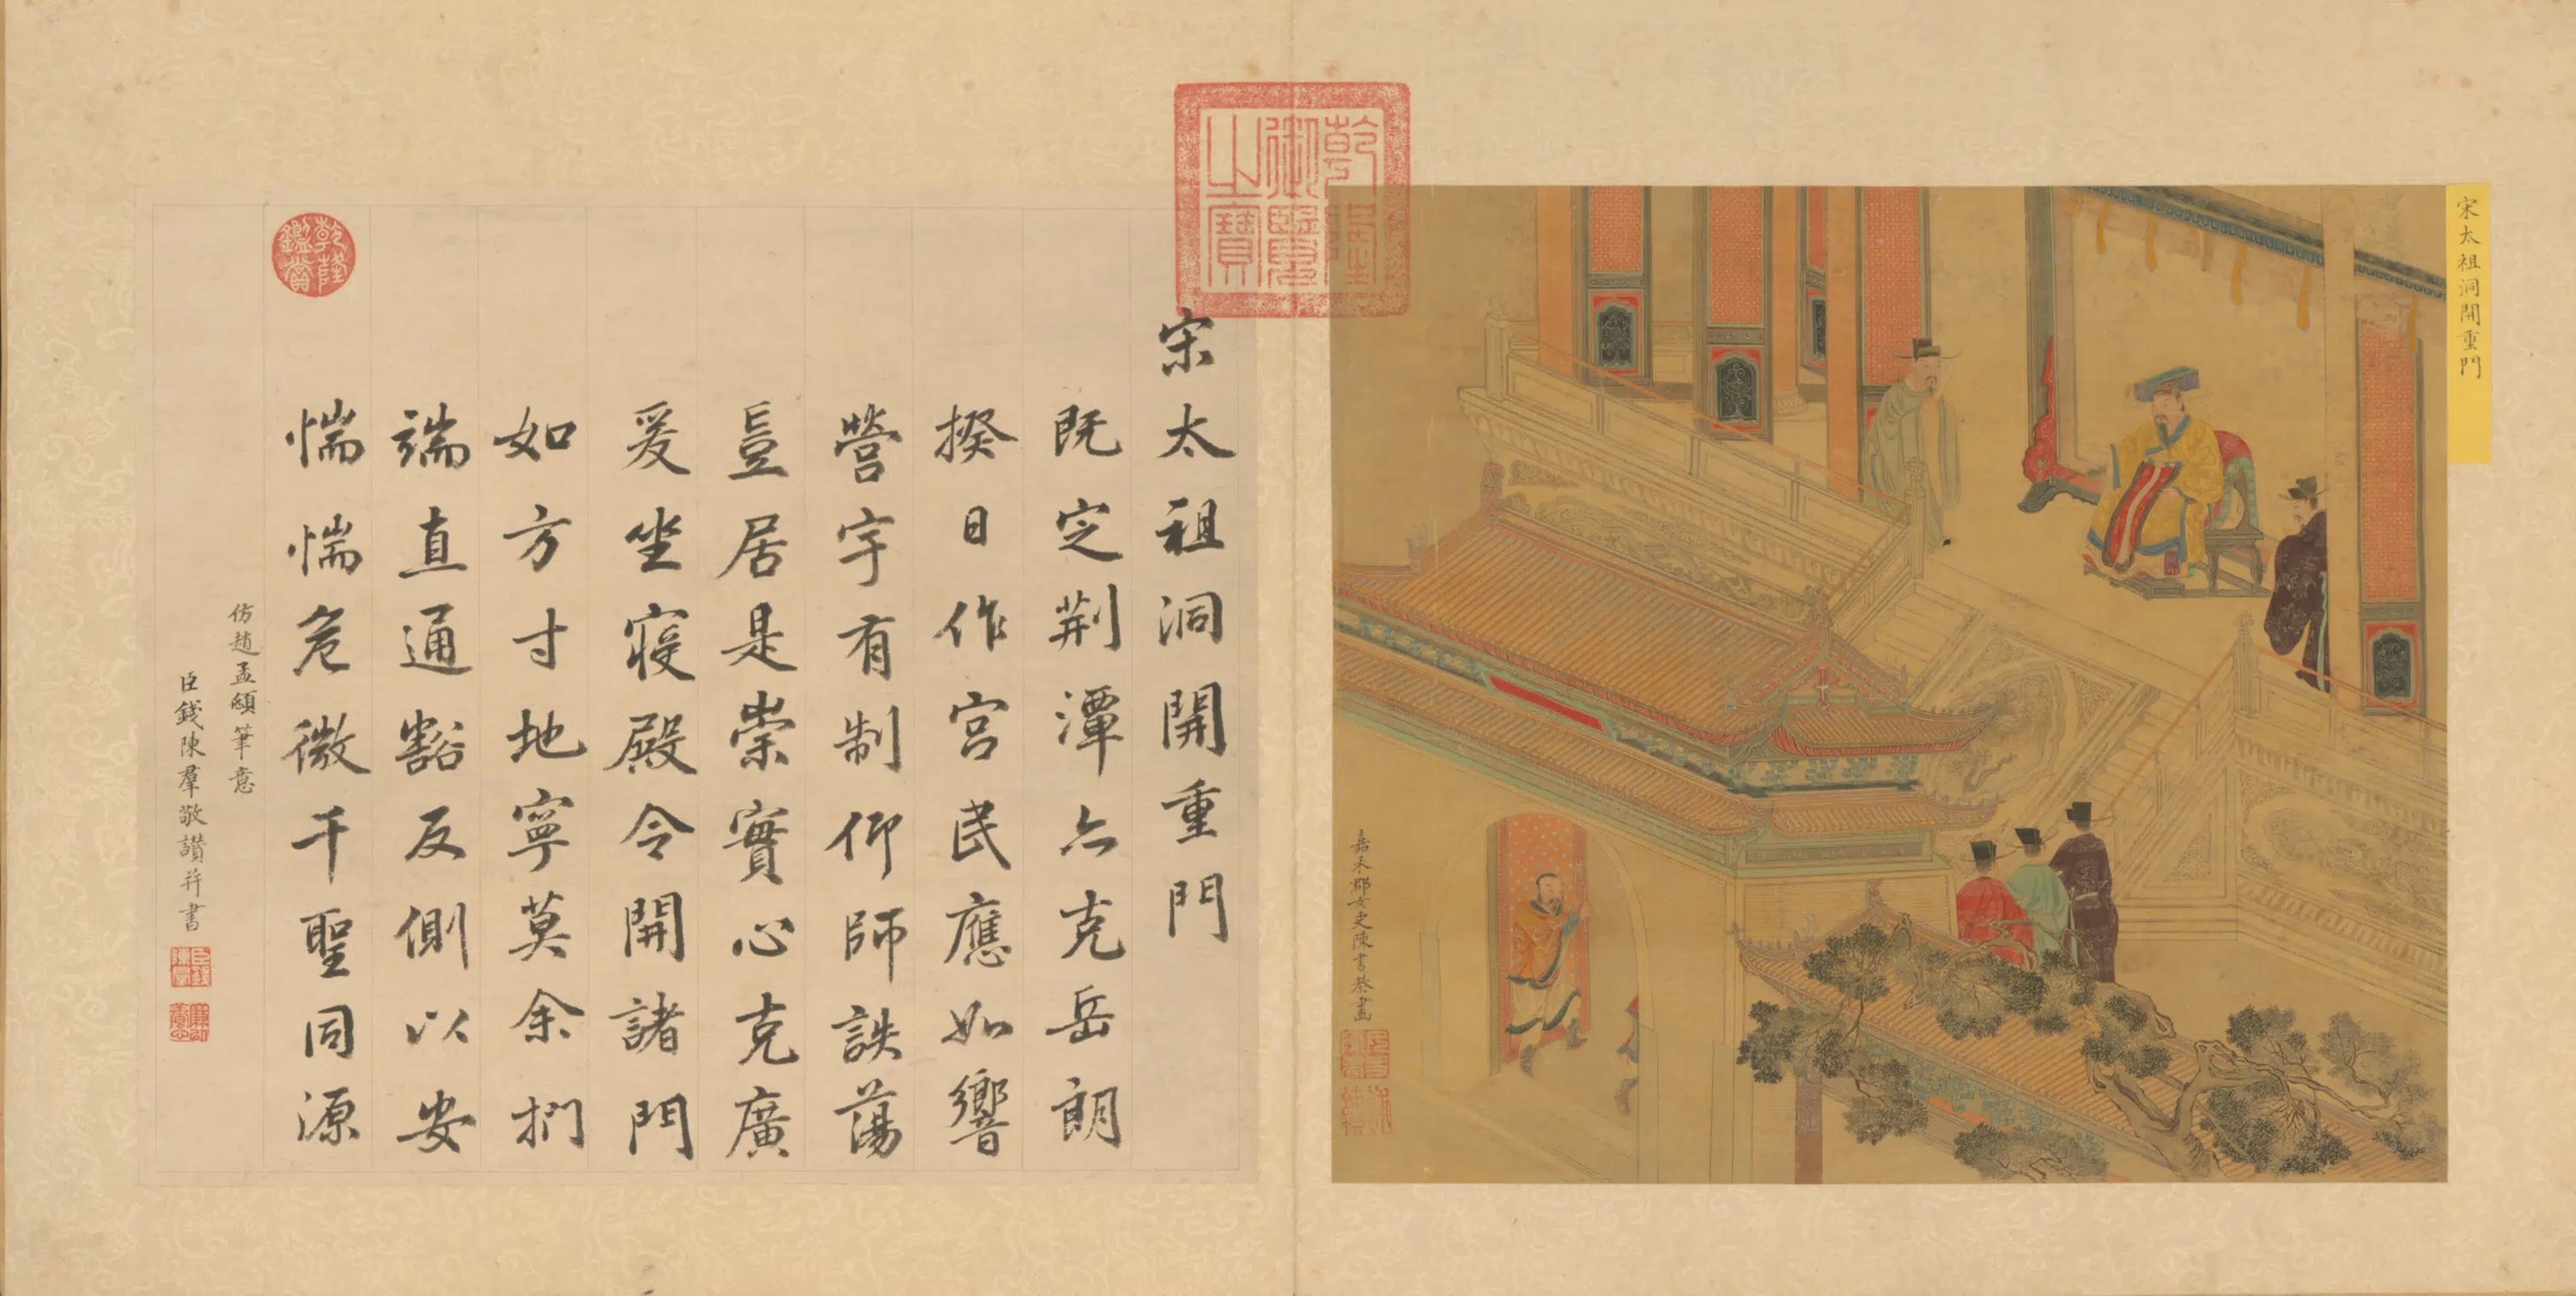 宋太祖洞開重門
嘉禾郡女史陳書恭畫
乾隆
御覽
之寶
宋太祖洞開重門
既定荆潭亦克岳朗
揆日作宮民應如響
營宇有制仰師詄蕩
豈居是崇實心克廣
爰坐寢殿令開諸門
如方寸地寧莫余捫
端直通豁反側以安
惴惴危微千聖同源
乾隆
鑑賞
仿趙孟頫筆意
臣錢陳羣敬讚并書